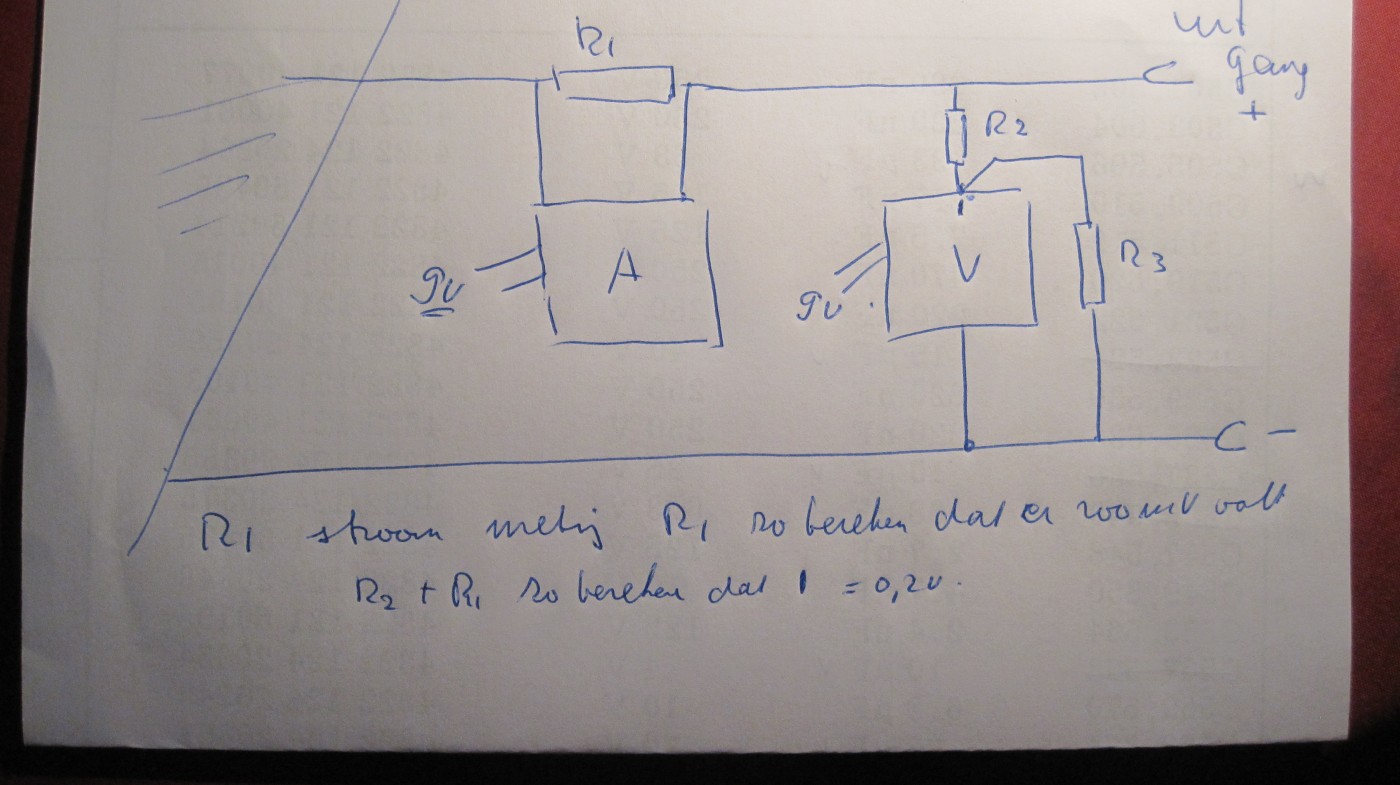 R1
uit
gang
+
R2
R3
A
V
9V
9V.
C -
R1 stroom meting R1 zo bereken dat er 200mV valt
R2 + R1 zo bereken dat 1 = 0,2V.